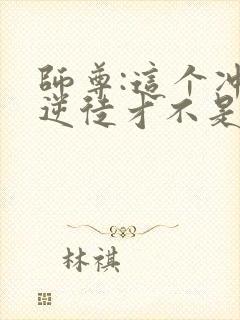 師尊:這个冲
逆徒才不是
林祺